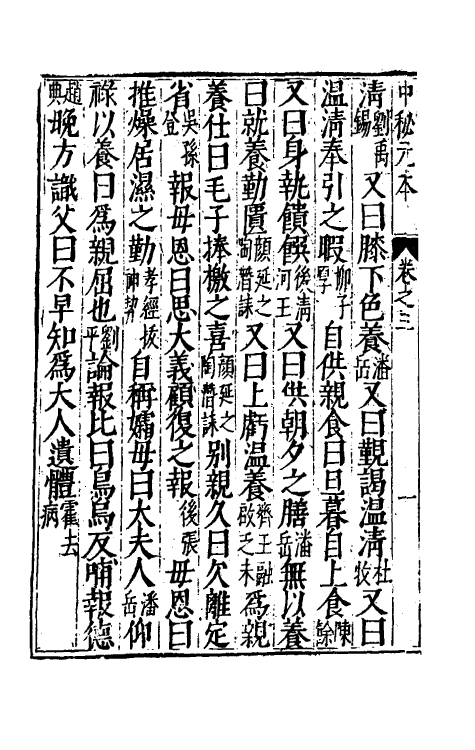 中秘元本 卷之三 一
淸劉禹錫又曰膝下色養潘岳又曰覲謁温淸杜牧又曰
温淸奉引之暇柳子厚自供親食曰旦暮自上食陳餘
又曰身執饋饌後淸河王又曰供朝夕之膳潘岳無以養
曰就養勤匱顔延之陶朁誄又曰上虧温養齊王融啟之未爲親
養仕曰毛子捧檄之喜顔延之陶朁誄别親久曰欠離定
省吳孫登報毋恩曰思大義顧復之報後張毋恩曰
推燥居濕之勤孝經援神契自稱孀毋曰太夫人潘岳仰
祿以養曰爲親屈也劉平論報比曰烏烏反哺報德
趙典晚方識父曰不早知爲大人遺體霍去病